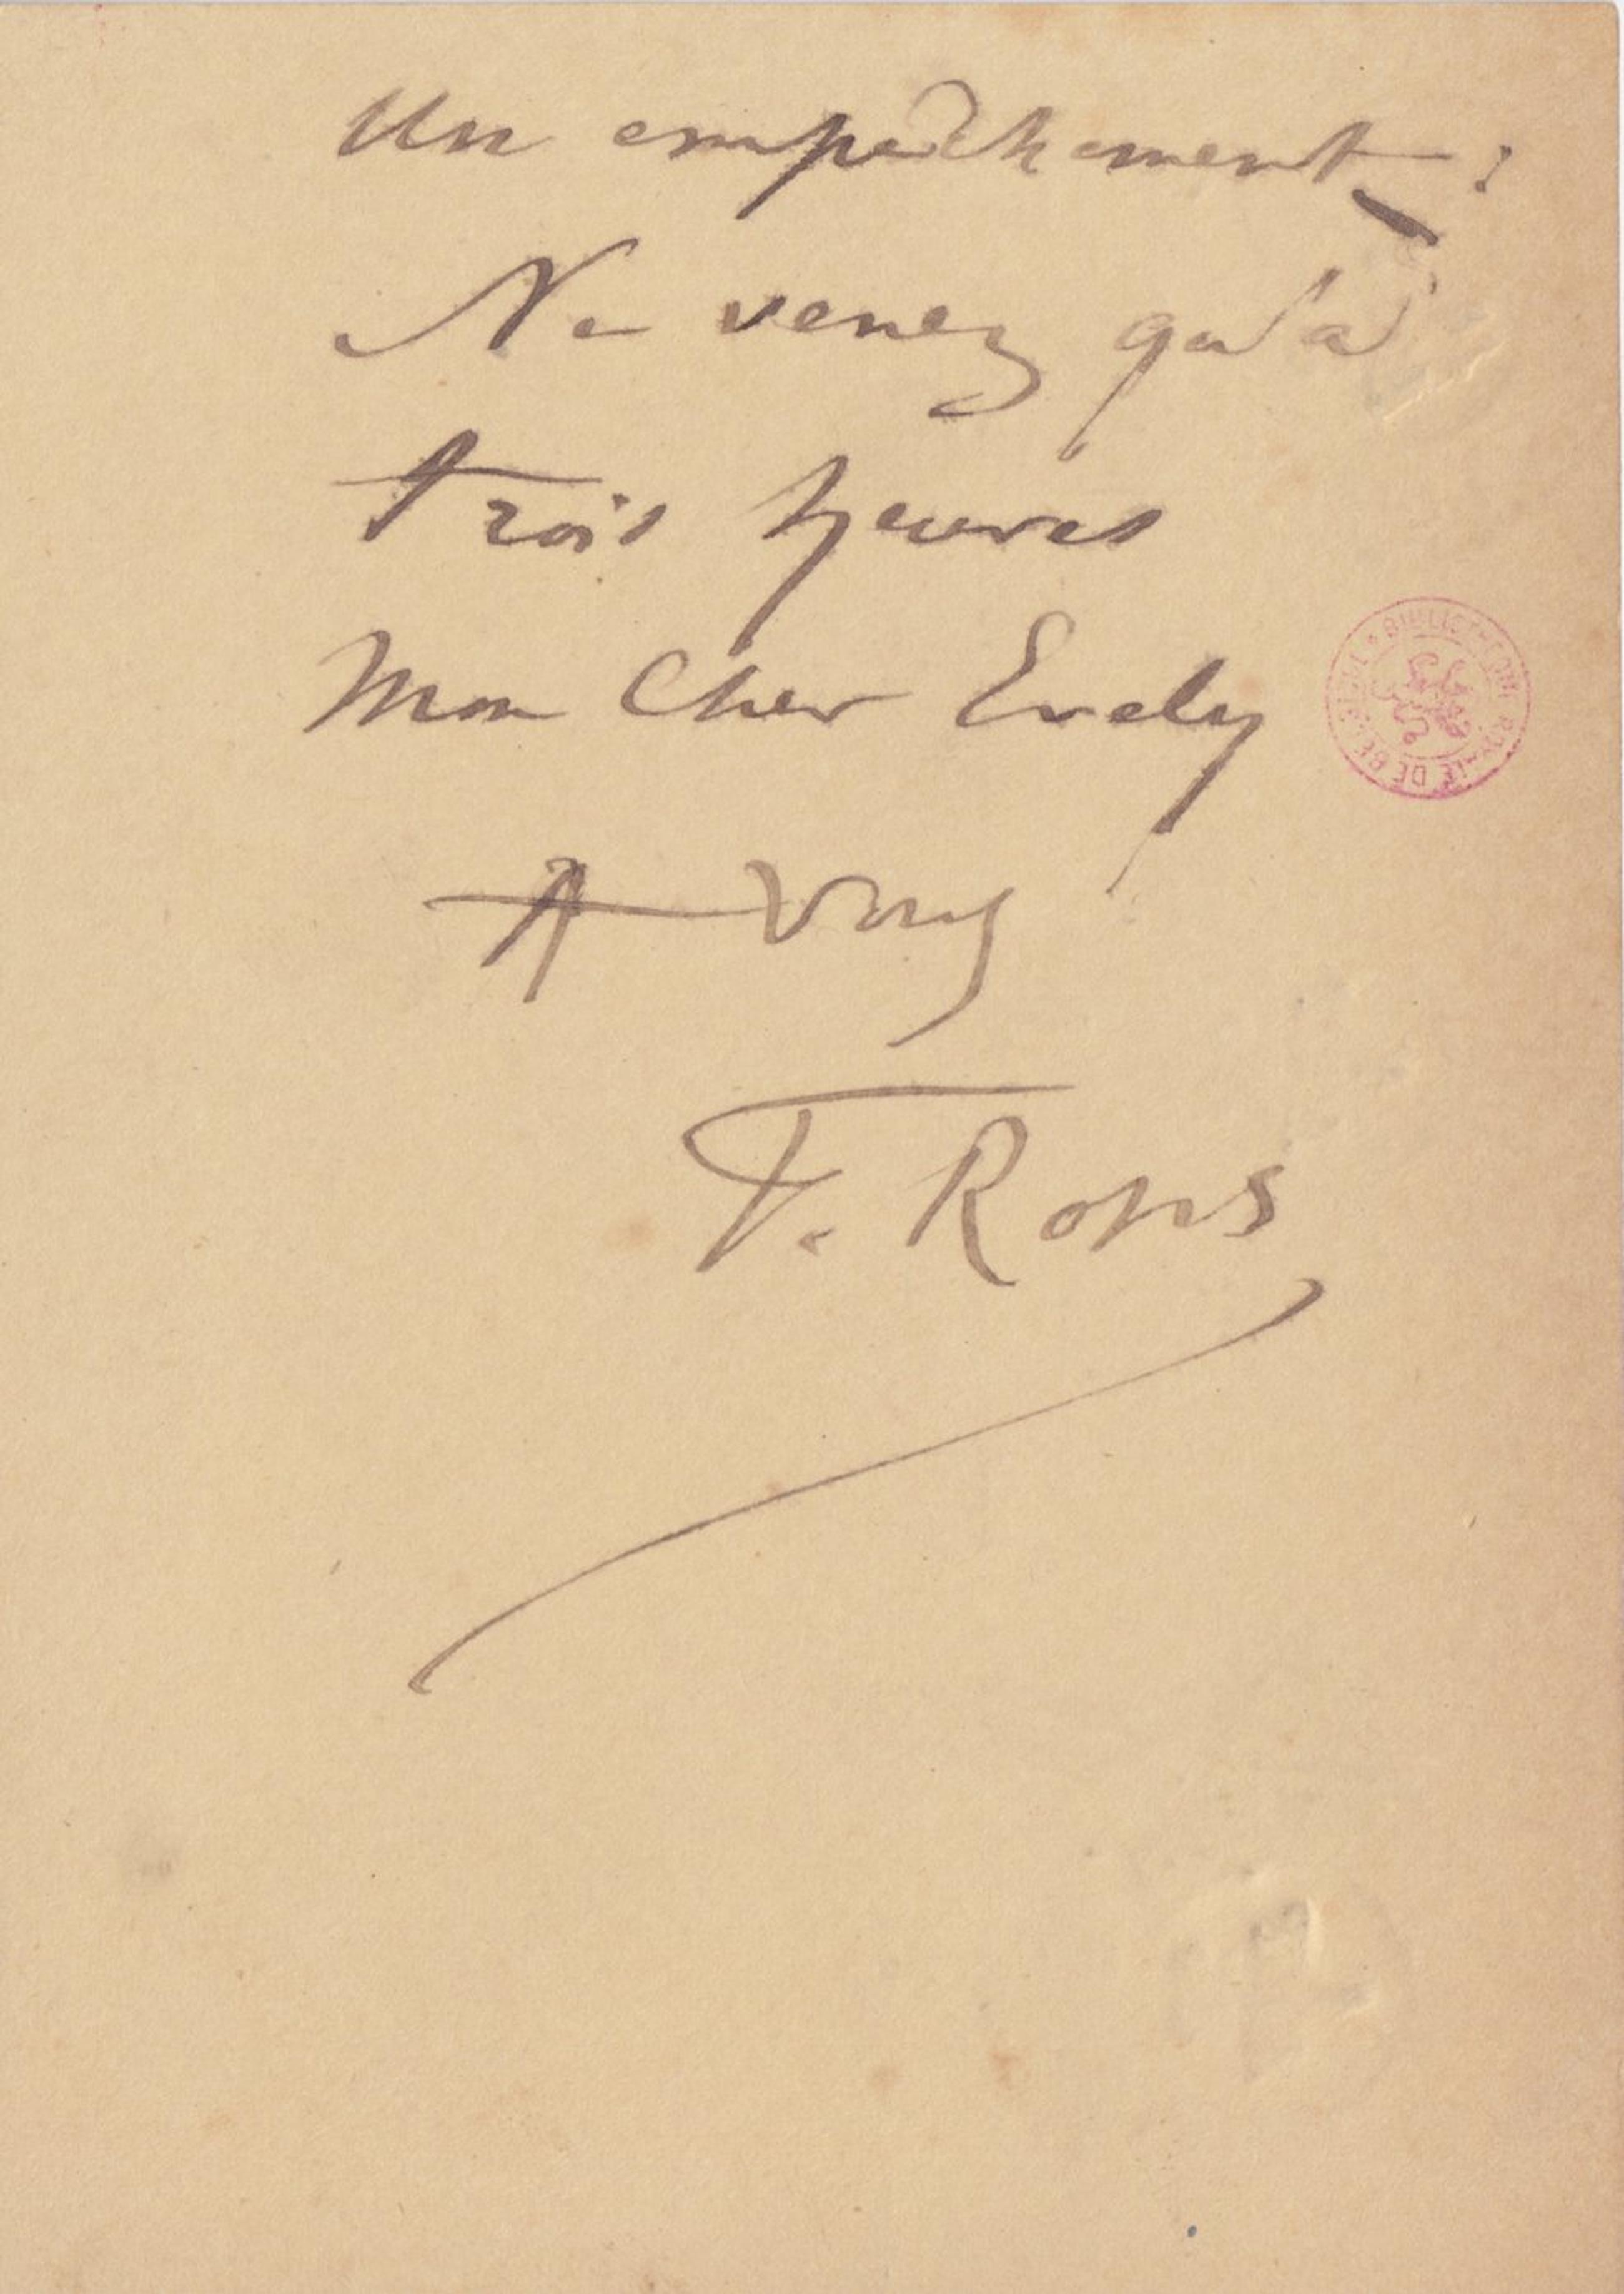 Un empêchement :
Ne venez qu'à
trois heures
Mon Cher Evely
A Vous
F. Rops
BIBLIOTHEQUE ROYALE DE BELGIQUE